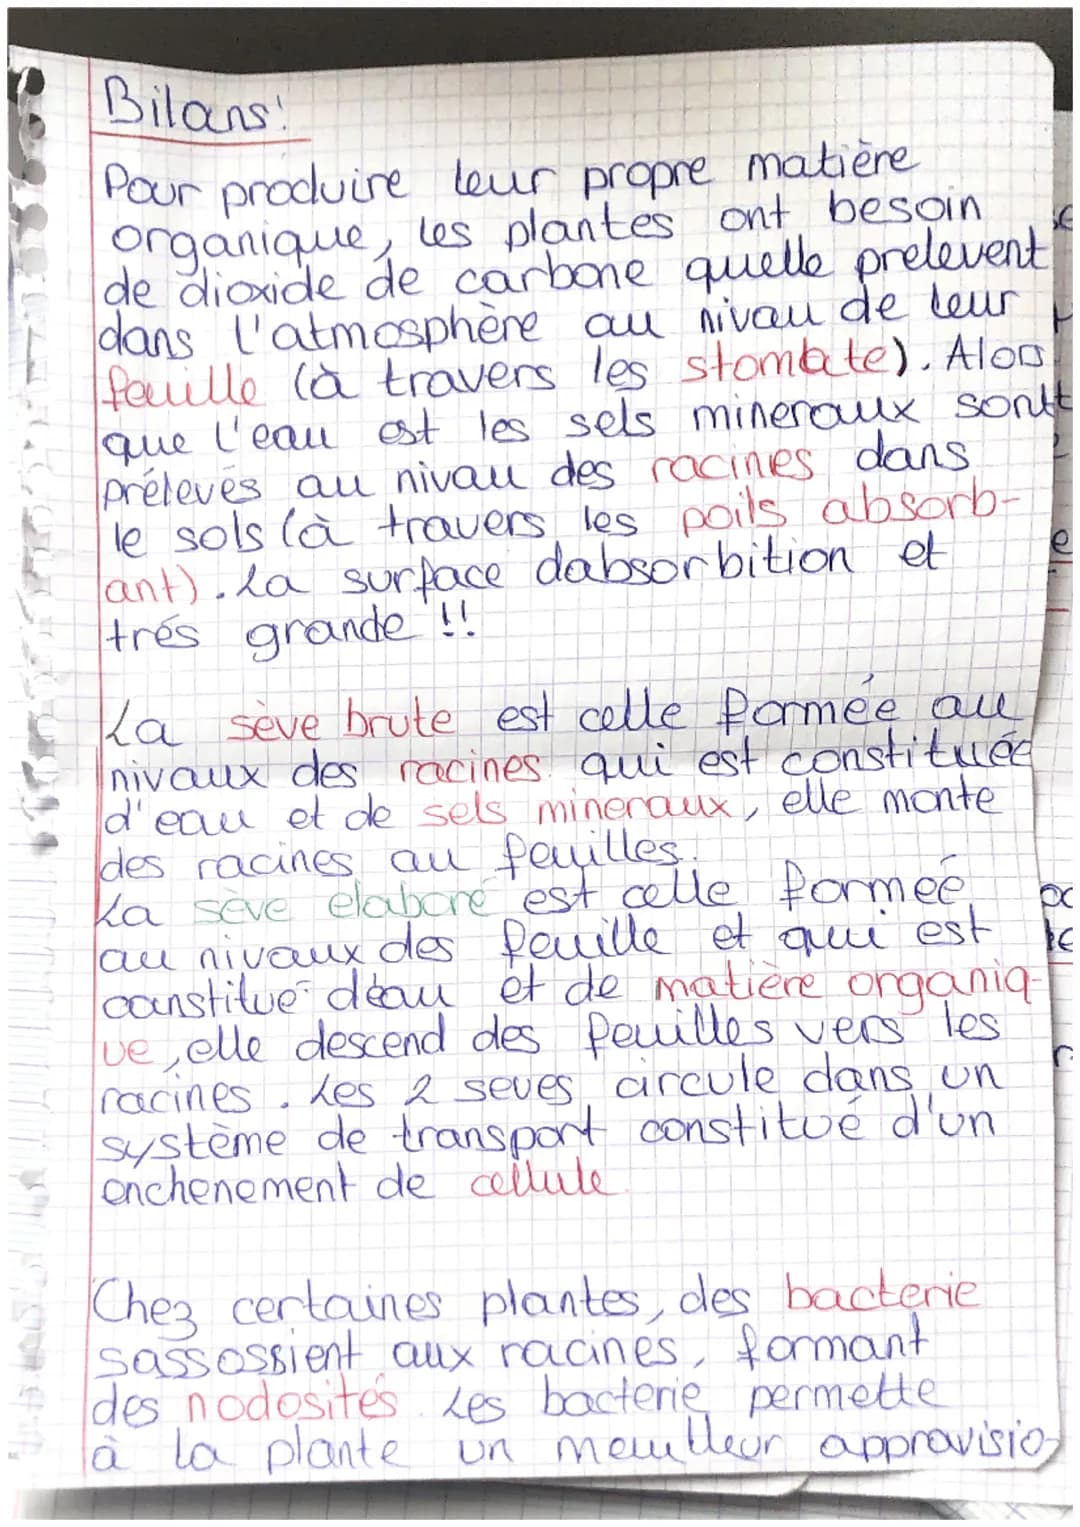 Bilans:
Pour produire leur propre matière
organique, les plantes ont besoin
de dioxide de carbone quelle prelevent
dans l'atmosphère au nivau de leur
feuille (à travers les stombate). Alors
que l'eau est les sels mineraux sontt
prélevés au nivau des racines dans
le sols (à travers les poils absorb-
ant). La surface dabsorbition et
trés grande !!
La sève brute est celle formée au
nivaux des racines qui est constituée
d'eau et de sels mineraux, elle monte
des racines au feuilles.
La sève elaboré est celle formeé
au nivaux des feuille et qui est
constitue deau et de matière organiq-
ue, elle descend des feuilles vers les
racines. Les 2 seves circule dans un
système de transport constitué d'un
enchenement de cellule
Chez certaines plantes, des bacterie
sassossient aux racines, formant
des nodosités. Les bacterie permette
à la plante un meuilleur approvisio-